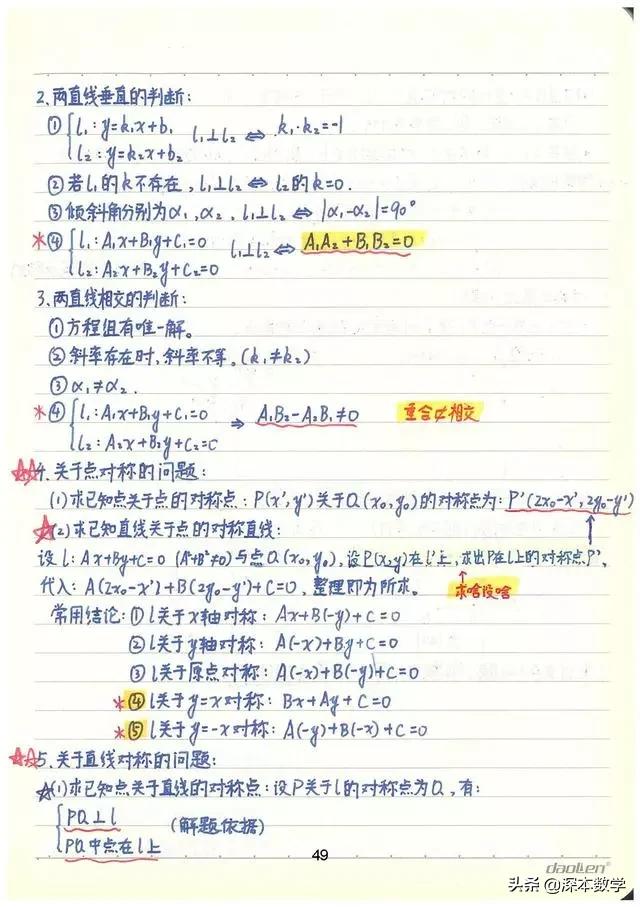 2、两直线垂直的判断：
① { l₁: y=k₁x+b₁   l₁⊥l₂ ⇔ k₁·k₂=-1
l₂: y=k₂x+b₂
② 若l₁的k不存在，l₁⊥l₂ ⇔ l₂的k=0.
③ 倾斜角分别为α₁,α₂，l₁⊥l₂ ⇔ |α₁-α₂|=90°
*④ { l₁: A₁x+B₁y+C₁=0   l₁⊥l₂ ⇔ A₁A₂+B₁B₂=0
l₂: A₂x+B₂y+C₂=0
3、两直线相交的判断：
① 方程组有唯一解。
② 斜率存在时，斜率不等。(k₁≠k₂)
③ α₁≠α₂.
*④ { l₁: A₁x+B₁y+C₁=0   ⇒ A₁B₂-A₂B₁≠0   重合⊄相交
l₂: A₂x+B₂y+C₂=0
☆☆4、关于点对称的问题：
(1)求已知点关于点的对称点：P(x',y')关于Q(x₀,y₀)的对称点为：P'(2x₀-x',2y₀-y')
☆(2)求已知直线关于点的对称直线：
设 l: Ax+By+C=0 (A²+B²≠0)与点Q(x₀,y₀)，设P(x,y)在l'上，求出P在l上的对称点P'，
代入：A(2x₀-x')+B(2y₀-y')+C=0，整理即为所求。 ↑求啥设啥
常用结论：① l关于x轴对称：Ax+B(-y)+C=0
② l关于y轴对称：A(-x)+By+C=0
③ l关于原点对称：A(-x)+B(-y)+C=0
*④ l关于y=x对称：Bx+Ay+C=0
*⑤ l关于y=-x对称：A(-y)+B(-x)+C=0
☆☆5、关于直线对称的问题：
☆(1)求已知点关于直线的对称点：设P关于l的对称点为Q，有：
{ PQ⊥l   (解题依据)
PQ中点在l上
49
daolien®
头条 @深本数学